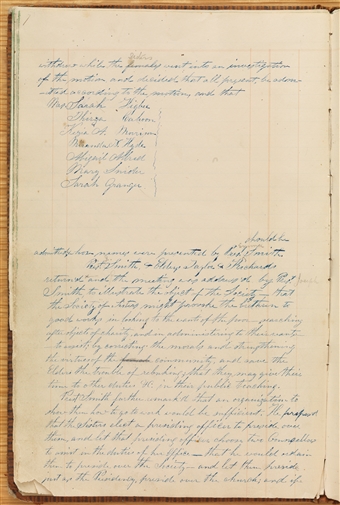 withdrew while the females went into an investigation
of the motion and decided that all present, be admitted
according to the motion, and that
Mrs Sarah Higbee
Thirza Cahoon
Kezia A. Morrison
Miranda N. Knight
Abigail Allred
Mary Snider
Sarah Granger
should be
admitted, whose names were presented by Prest Smith
Prest Smith, & Elders Taylor & Richards
returned and the meeting was addressed by Prest
Smith to illustrate the object of the Society — that
the Society of Sisters might provoke the brethren to
good works in looking to the wants of the poor — searching
after objects of charity, and in administering to their wants
— to assist, by correcting the morals and strengthening
the virtues of the community, and save the
Elders the trouble of rebuking, that they may give their
time to other duties &c in their public teaching.
Prest Smith further remark'd that an organization to
show them how to go to work would be sufficient. He proposed
that the Sisters elect a presiding officer to preside over
them, and let that presiding officer choose two Counsellors
to assist in the duties of her Office — that he would ordain
them to preside over the Society — and let them preside,
just as the Presidency, preside over the church; and if